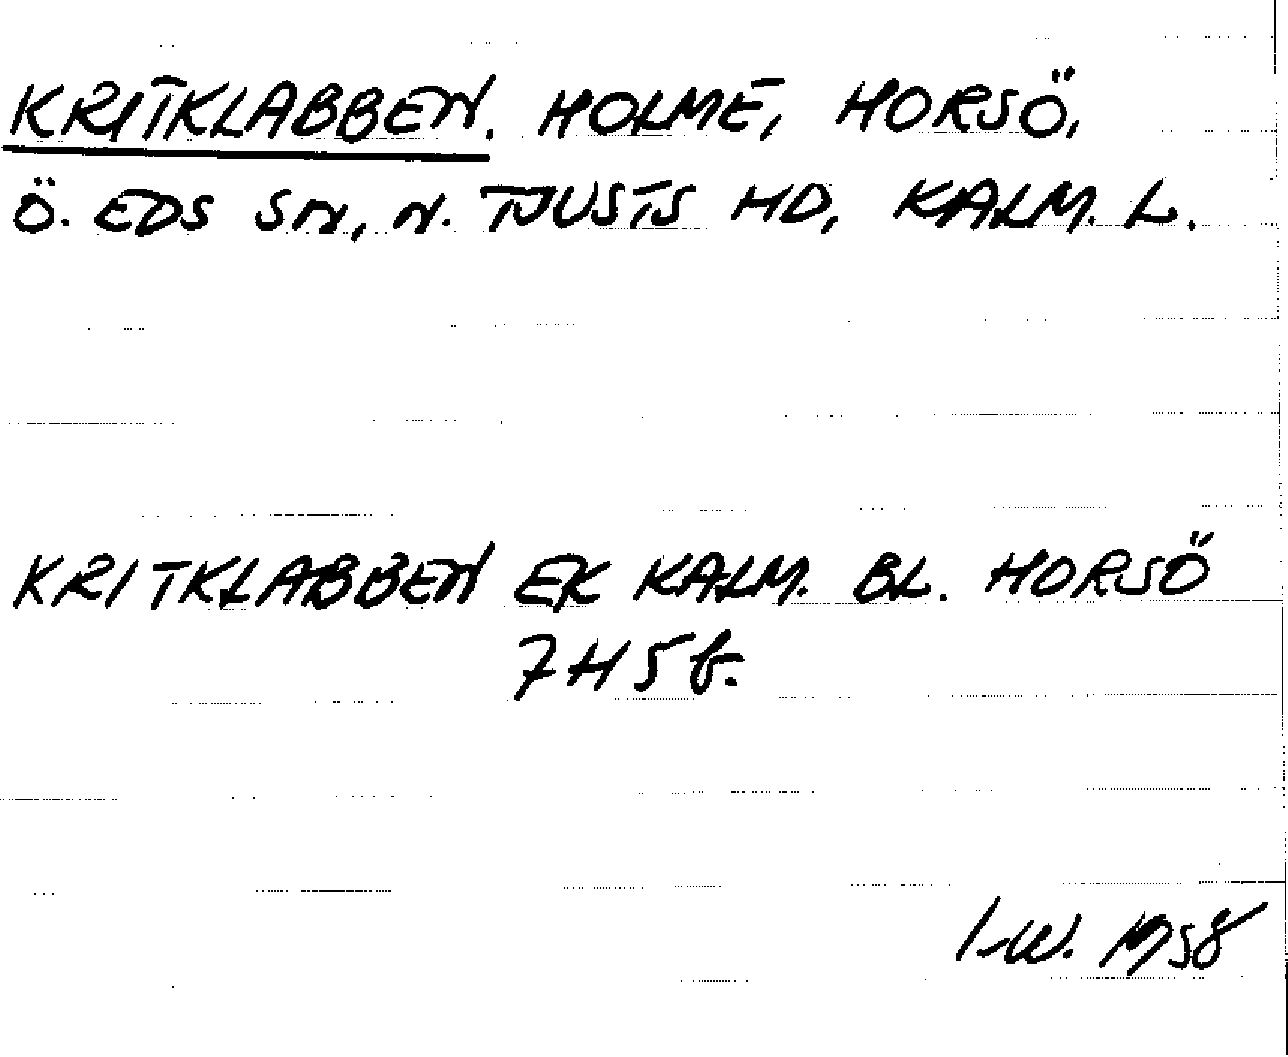 KRITKLABBEN. HOLME, HORSÖ,
Ö. EDS SN, N. TJUSTS HD, KALM. L.
KRITKLABBEN EK KALM. BL. HORSÖ
7H5f.
I-W. 1958